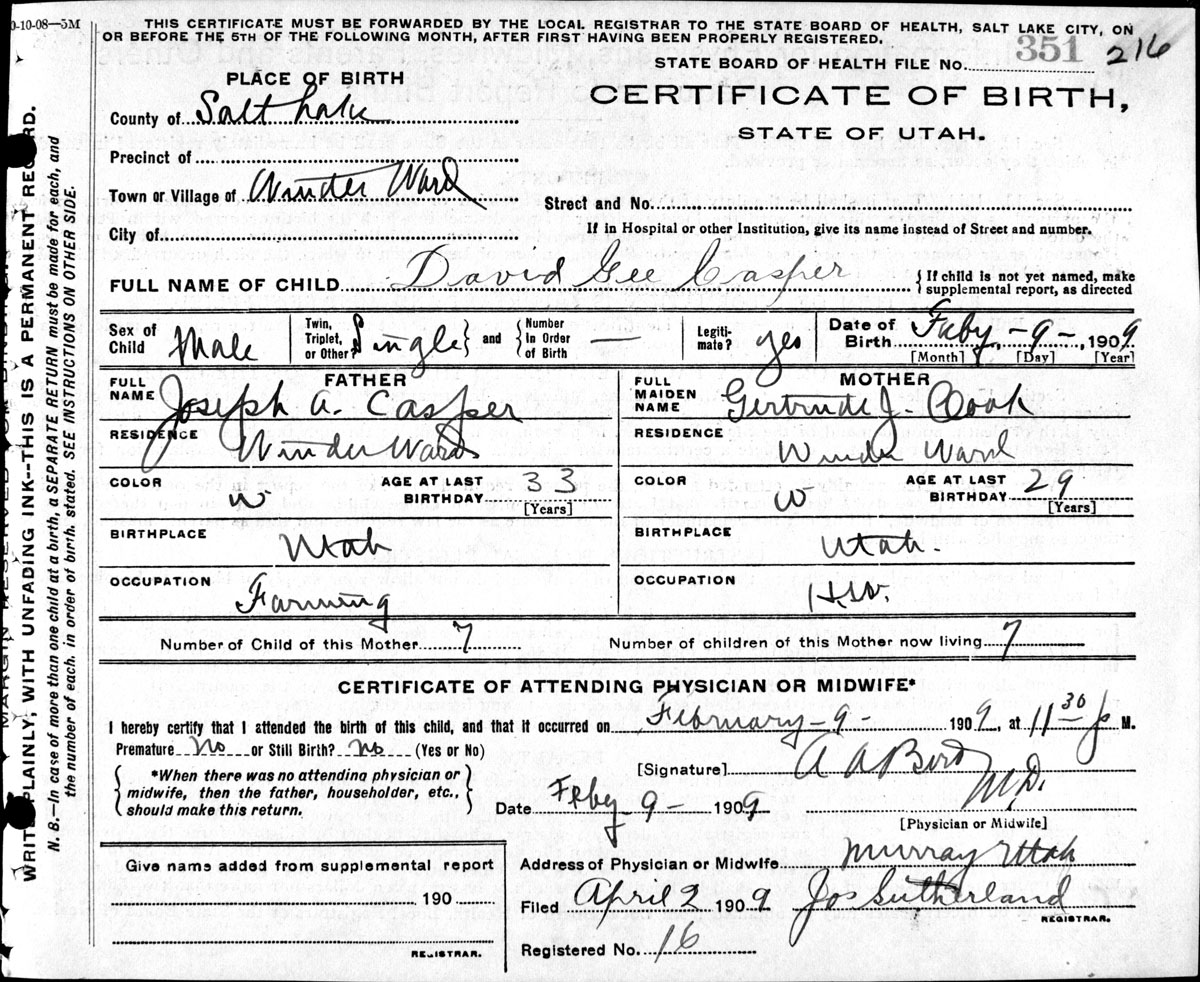 0-10-08—5M
THIS CERTIFICATE MUST BE FORWARDED BY THE LOCAL REGISTRAR TO THE STATE BOARD OF HEALTH, SALT LAKE CITY, ON
OR BEFORE THE 5TH OF THE FOLLOWING MONTH, AFTER FIRST HAVING BEEN PROPERLY REGISTERED.
STATE BOARD OF HEALTH FILE NO. 351 216
PLACE OF BIRTH
CERTIFICATE OF BIRTH,
STATE OF UTAH.
County of Salt Lake
Precinct of
Town or Village of Winder Ward
Street and No.
City of
If in Hospital or other Institution, give its name instead of Street and number.
FULL NAME OF CHILD David Gee Casper { If child is not yet named, make supplemental report, as directed
Sex of Child Male Twin, Triplet, or Other? Single } and { Number In Order of Birth — Legiti- mate? yes Date of Birth Feby - 9 - , 1909
[Month] [Day] [Year]
FATHER
FULL NAME Joseph A. Casper
RESIDENCE Winder Ward
COLOR W AGE AT LAST BIRTHDAY 33 [Years]
BIRTHPLACE Utah
OCCUPATION Farming
MOTHER
FULL MAIDEN NAME Gertrude J. Cook
RESIDENCE Winder Ward
COLOR W AGE AT LAST BIRTHDAY 29 [Years]
BIRTHPLACE Utah.
OCCUPATION H.W.
Number of Child of this Mother 7 Number of children of this Mother now living 7
CERTIFICATE OF ATTENDING PHYSICIAN OR MIDWIFE*
I hereby certify that I attended the birth of this child, and that it occurred on February - 9 - 1909, at 11 30 p M.
Premature no or Still Birth? no (Yes or No)
{ *When there was no attending physician or midwife, then the father, householder, etc., should make this return. }
[Signature] A A Bird M.D.
Date Feby 9 - 1909
[Physician or Midwife]
Give name added from supplemental report
190
REGISTRAR.
Address of Physician or Midwife Murray Utah
Filed April 2 1909 Jos Sutherland
REGISTRAR.
Registered No. 16
MARGIN RESERVED FOR BINDING
WRITE PLAINLY, WITH UNFADING INK--THIS IS A PERMANENT RECORD.
N. B.—In case of more than one child at a birth, a SEPARATE RETURN must be made for each, and
the number of each, in order of birth, stated. SEE INSTRUCTIONS ON OTHER SIDE.